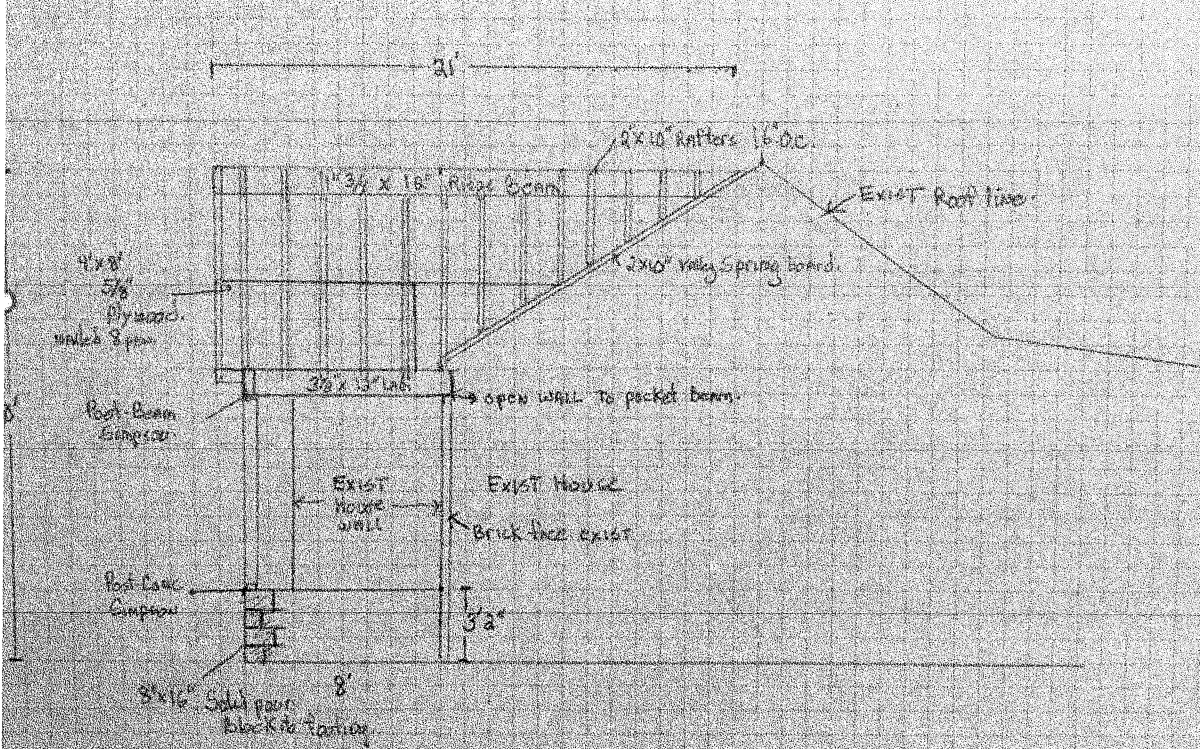 21'
2"x10" Rafters 16" O.C.
Ridge Beam
EXIST Roof line.
2x10" Valley Spring board.
4'x8'
5/8"
Plywood.
nailed 8
3½" x 13"
OPEN WALL To pocket beam.
Post-Beam
Simpson
8'
EXIST
House
WALL
EXIST House
Brick face EXIST
Post Conc
Simpson
3'2"
8'
8"x16" Solid pour
Block to footing